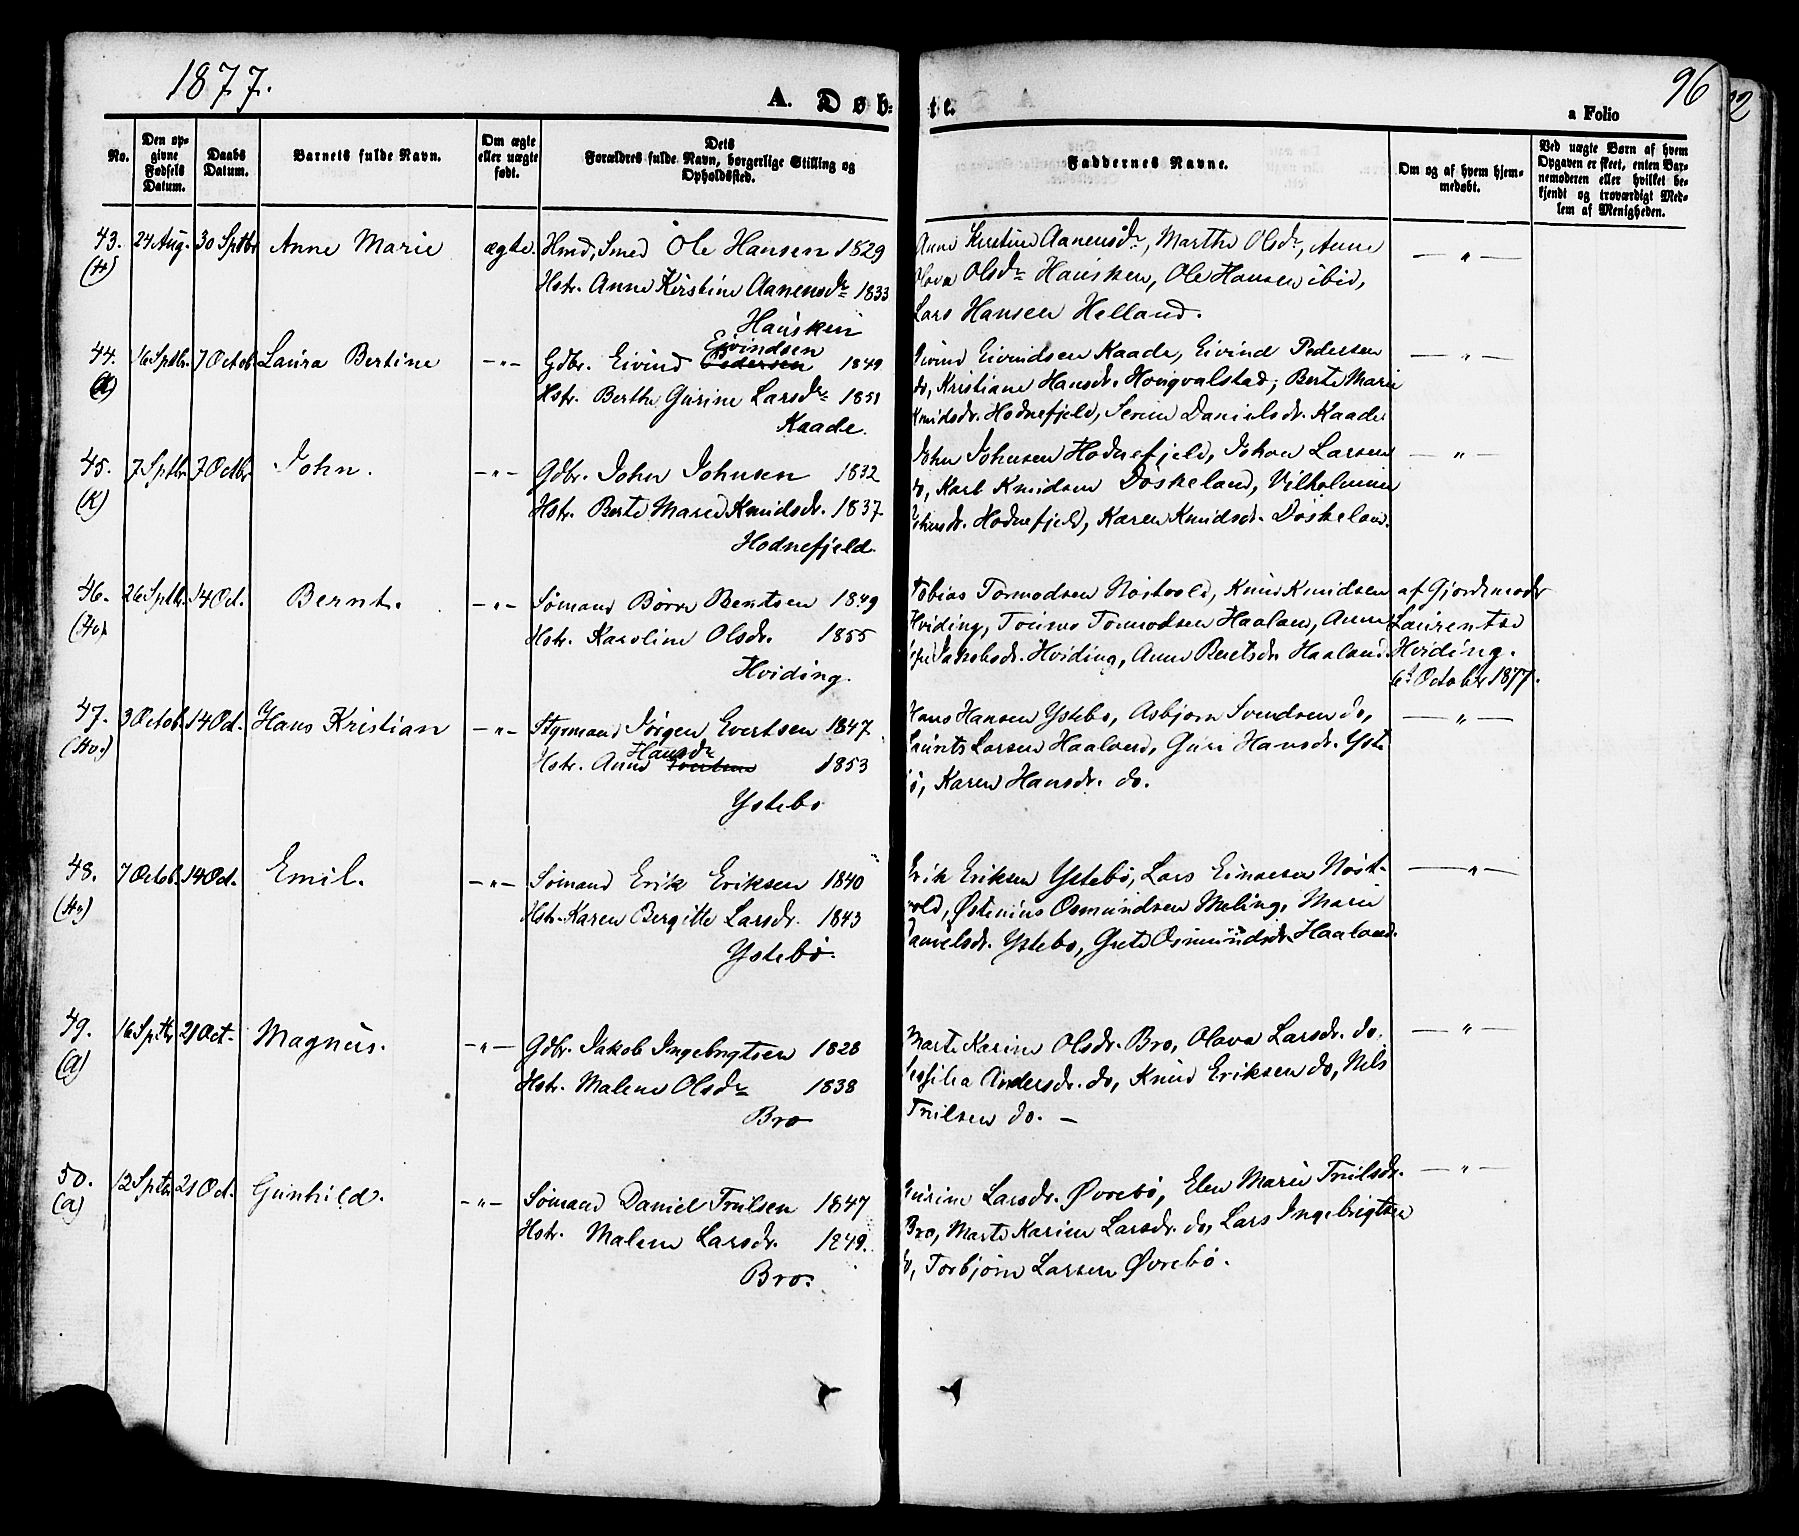 1877.
A. Døb-
te.
96
a Folio
No.
Den op-
givne
Fødsels
Datum.
Daabs
Datum.
Barnets fulde Navn.
Om ægte
eller uægte
født.
Dets
Forældres fulde Navn, borgerlige Stilling og
Opholdssted.
Faddernes Navne.
Om og af hvem hjem-
medøbt.
Ved uægte Børn af hvem
Opgaven er skeet, enten Bar-
nemoderen eller hvilket be-
kjendt og troværdigt Med-
lem af Menigheden.
43. 24 Aug. 30 Sptbr Anne Marie ægte. Hmd, Smed Ole Hansen 1829
(H)
Hstr. Anne Kirstine Aanensdr 1833
Hausken
Anne Kirstine Aanensdr, Marthe Olsdr, Anne
Olava Olsdr Hausken, Ole Hansen ibid,
Lars Hansen Helland.
— " —
44. 16 Sptbr. 7 Octob Laura Bertine -"- Gdbr. Eivind Pedersen Eivindsen 1849
Hstr. Berthe Gurine Larsdr 1851
Kaade.
Eivind Eivindsen Kaade, Eivind Pedersen
do, Kristiane Hansdr. Hougvalstad, Berte Marie
Knudsdr. Hodnefjeld, Serine Danielsdr. Kaade.
— " —
45. 7 Sptbr 7 Octbr John. -"- Gdbr. John Johnsen 1832
(K)
Hstr. Berte Marie Knudsdr. 1837
Hodnefjeld.
John Johnsen Hodnefjeld, Johan Larsen
do, Karl Knudsen Doskeland, Vilhelmine
Johnsdr. Hodnefjeld, Karen Knudsdr. Doskeland.
— " —
46. 26 Sptbr. 14 Oct. Bernt. -"- Sømand Børre Bentsen 1849
(Hv)
Hstr. Karoline Olsdr. 1855
Hviding.
Tobias Tormodsen Nøstvold, Knud Knudsen
Hviding, Tormod Haaland, Anne
Jakobsdr. Hviding, Anne Bentsdr Haaland.
af Gjordemoder
Laurentse
Hviding.
6t October 1877.
47. 3 Octob. 14 Oct. Hans Kristian -"- Styrmand Jørgen Evertsen 1847
(Hv.)
Hstr. Anne Hansdr 1853
Ystebø
Hans Hansen Ystebø, Asbjørn Svendsen do,
Larsen Haaland, Guri Hansdr. Yste
bø, Karen Hansdr. do.
— " —
48. 7 Octob. 14 Oct. Emil. -"- Sømand Erik Eriksen 1840
(Hv)
Hstr. Karen Bergitte Larsdr. 1843
Ystebø.
Erik Eriksen Ystebø, Lars Einarsen Nøst-
vold, Østenius Osmundsen Meling, Marie
Danielsdr. Ystebø, Grete Osmundsdr. Haaland.
— " —
49. 16 Sptbr 21 Oct. Magnus. -"- Gdbr. Jakob Ingebrigtsen 1828
(A)
Hstr. Malene Olsdr 1838
Bro
Marte Karine Olsdr. Bro, Olava Larsdr. do,
Andersdr. do, Knud Eriksen do, Nils
Truilsen do. —
— " —
50. 12 Sptbr 21 Oct. Gunhild. -"- Sømand Daniel Truilsen 1847
(a)
Hstr. Malene Larsdr. 1849.
Bro.
Gurine Larsdr. Øvrebø, Elen Marie Truilsdr.
Bro, Marte Karine Larsdr. do, Lars Ingebrigtsen
do, Torbjørn Larsen Øvrebø.
— " —